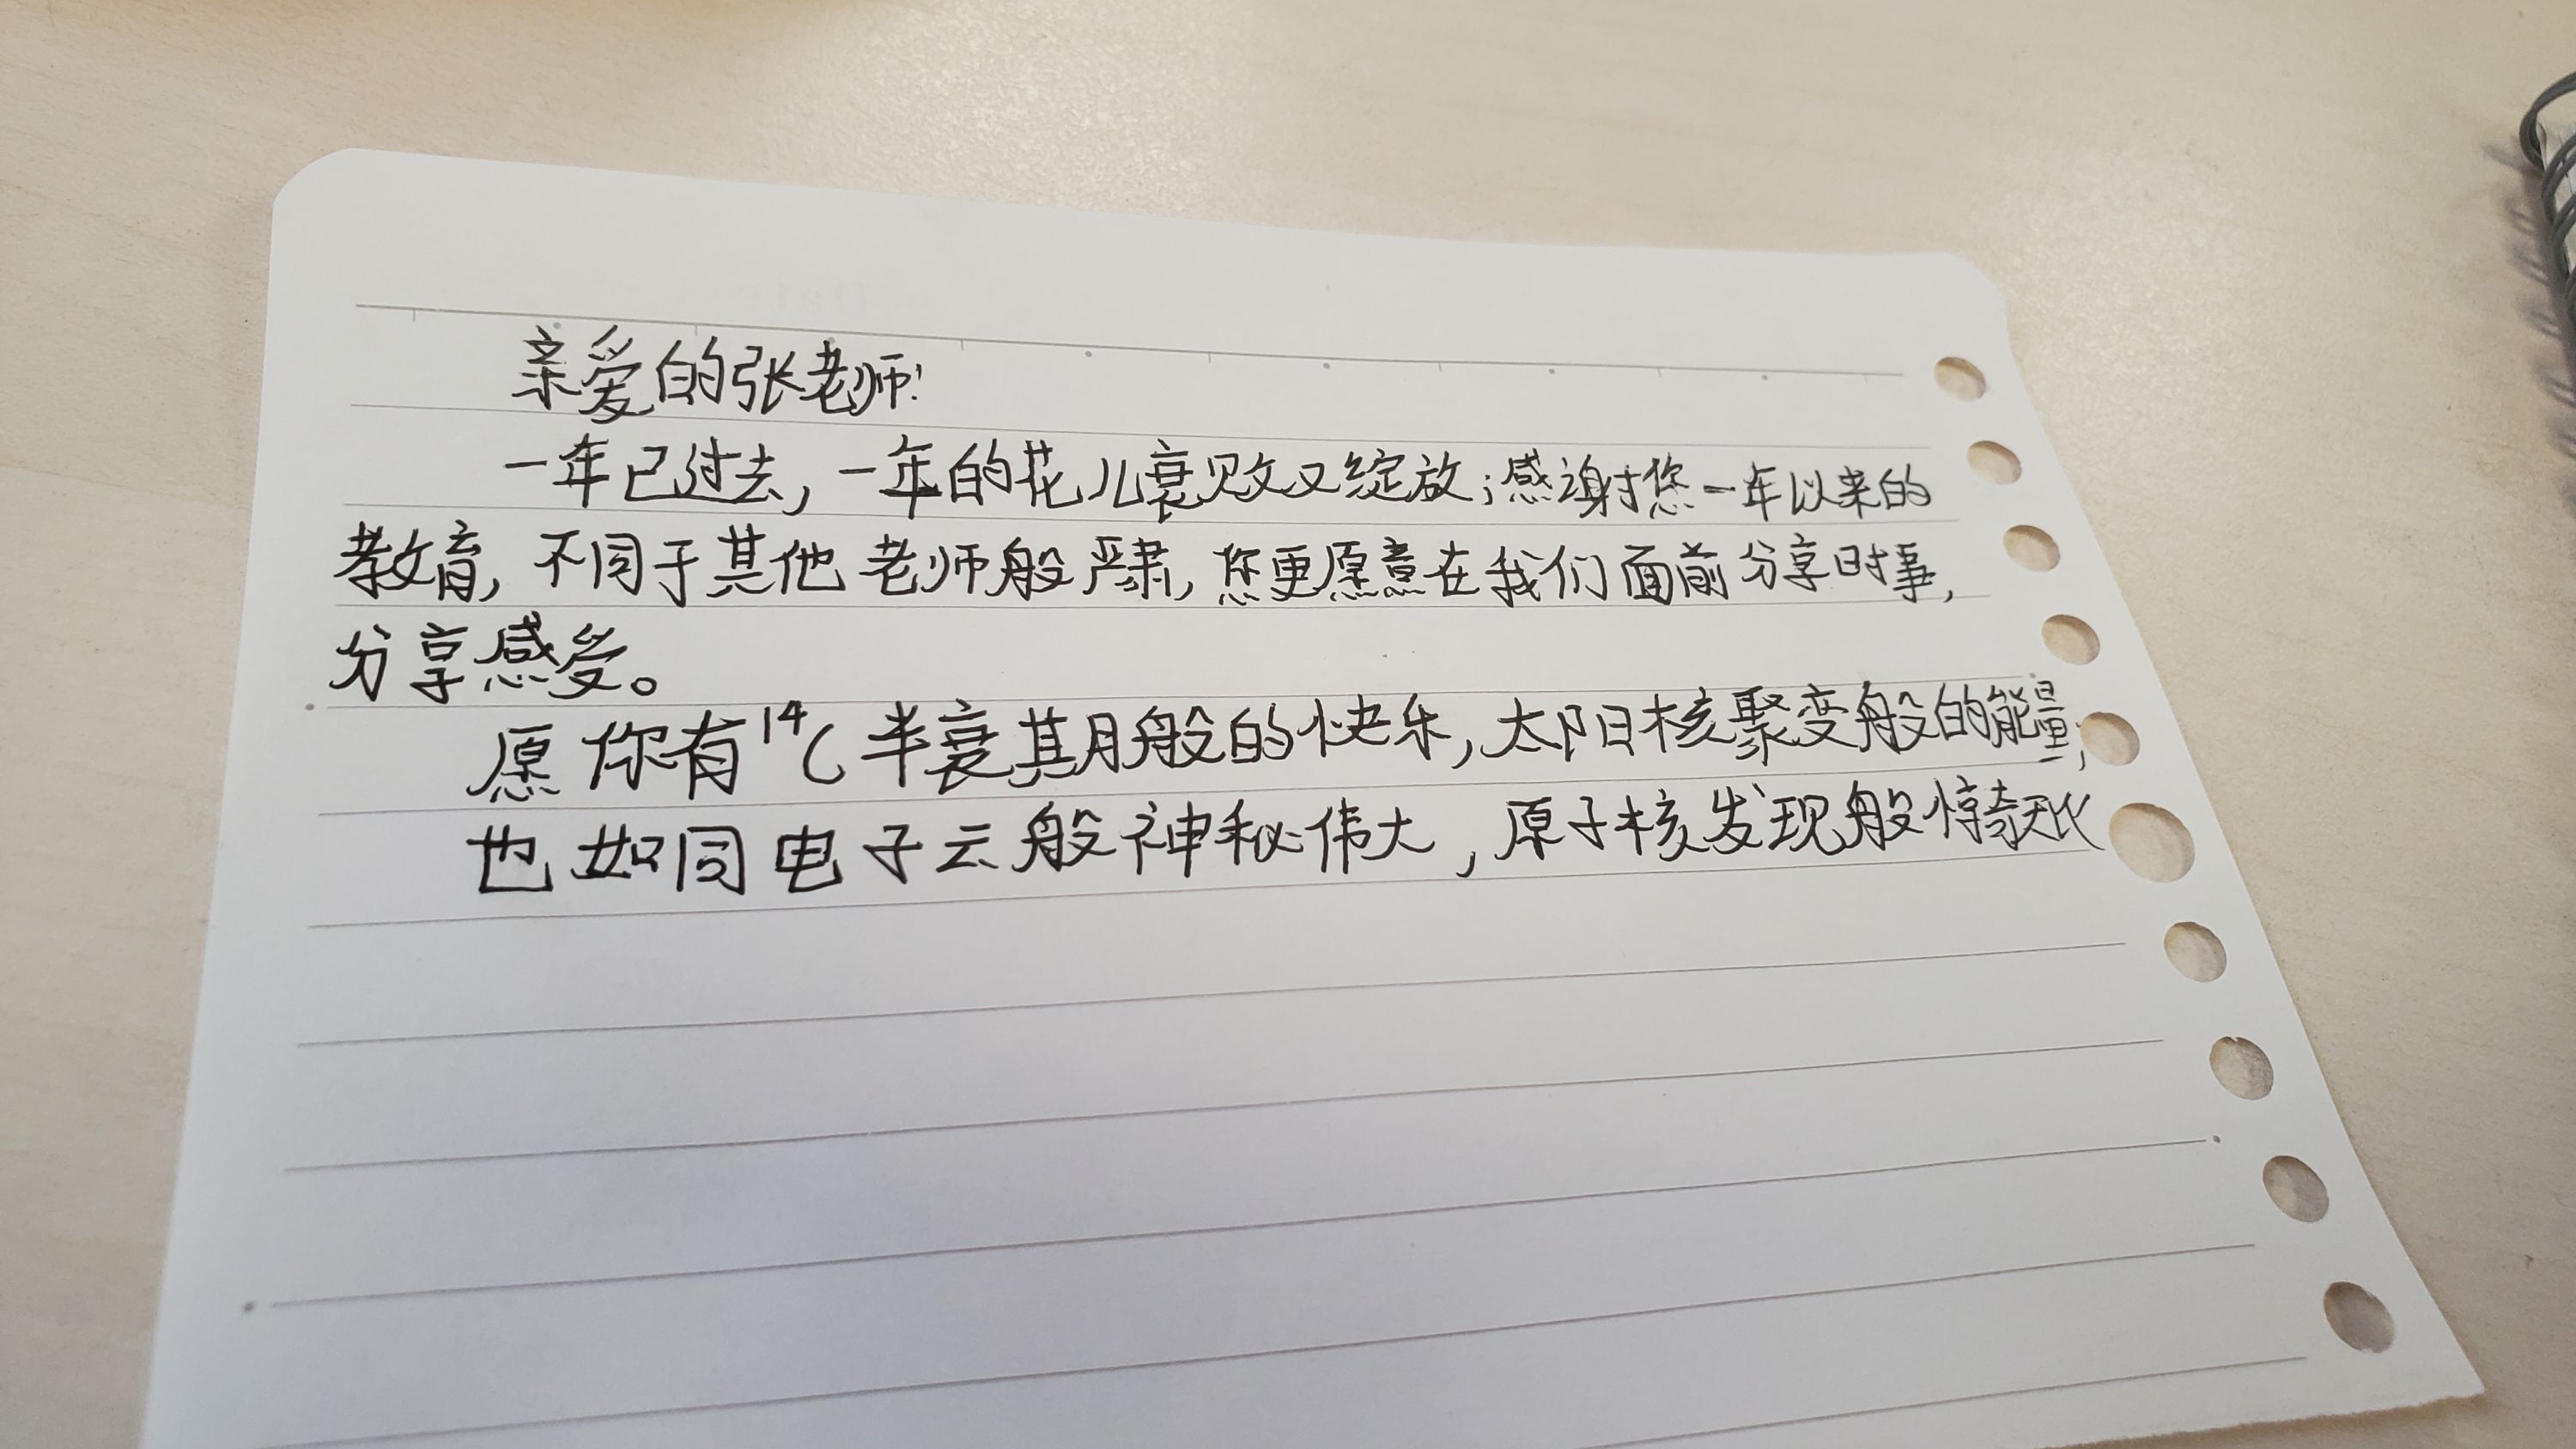 亲爱的张老师!
一年已过去,一年的花儿衰败又绽放;感谢您一年以来的
教育,不同于其他老师般严肃,您更愿意在我们面前分享时事,
分享感受。
愿你有¹⁴C半衰期般的快乐,太阳核聚变般的能量,
也如同电子云般神秘伟大,原子核发现般惊奇